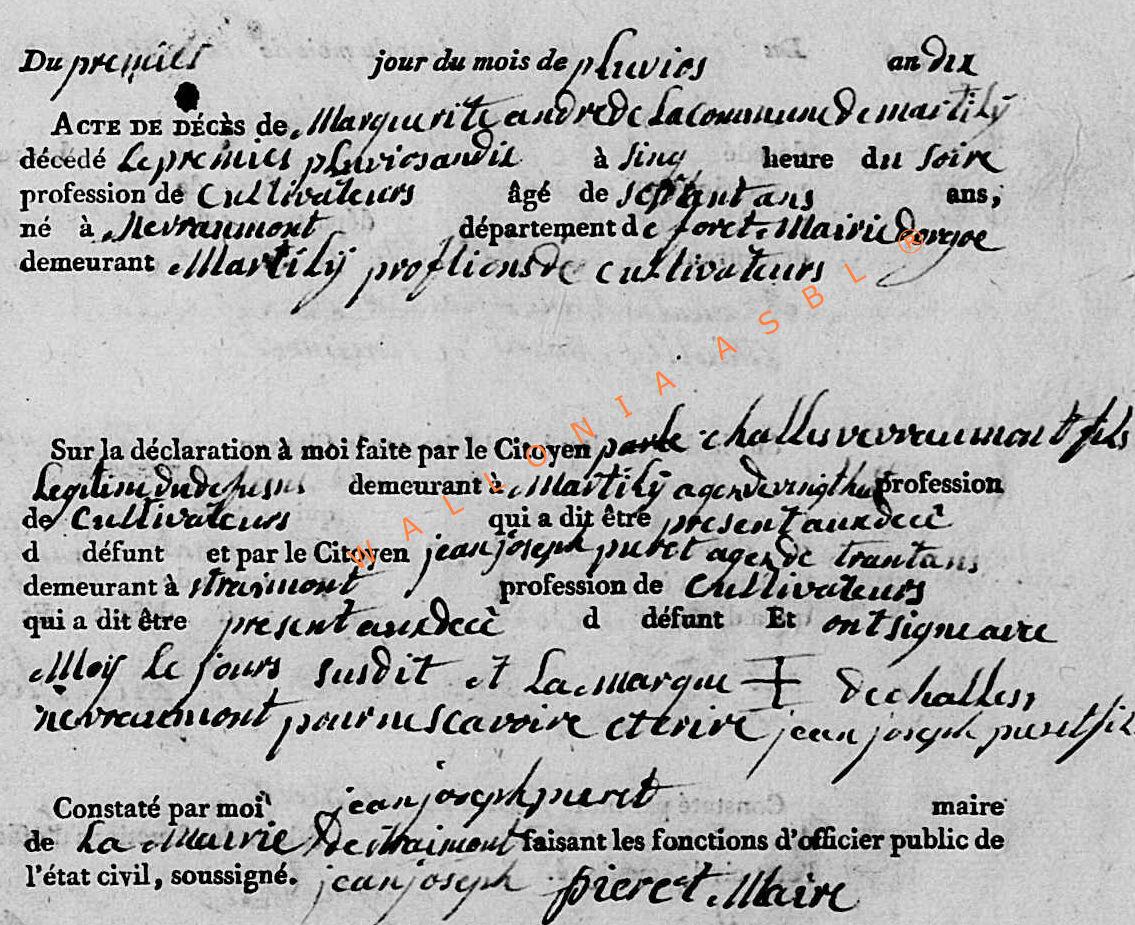 Du premier jour du mois de pluvios an dix
ACTE DE DÉCÈS de Marguerite andre de La commune de martilÿ
décédé Le premier pluvios an dix à sinq heure du soire
profession de Cultivateurs âgé de septant ans ans,
né à Nevraumont département de foret Mairie dorgoe
demeurant Martilÿ de cultivateurs
Sur la déclaration à moi faite par le Citoyen challes nevraumont fils
Legitim demeurant à Martilÿ age de vingt huit profession
de Cultivateurs qui a dit être present aux decè
d défunt et par le Citoyen jean joseph puret age de trant ans
demeurant à straimont profession de Cultivateurs
qui a dit être present aux decè d défunt Et ont signe avec
Moiÿ Le jours susdit et La marque + de challes
nevraumont pour ne scavoire et crire jean joseph puret fils
Constaté par moi jean joseph puret maire
de La Mairie de straimont faisant les fonctions d'officier public de
l'état civil, soussigné. jean joseph pieret Maire
WALLONIA ASBL ®